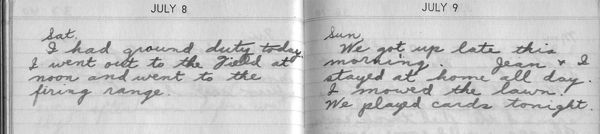 JULY 8
Sat.
I had ground duty today.
I went out to the Field at
noon and went to the
firing range.
JULY 9
Sun.
We got up late this
morning. Jean + I
stayed at home all day.
I mowed the lawn.
We played cards tonight.